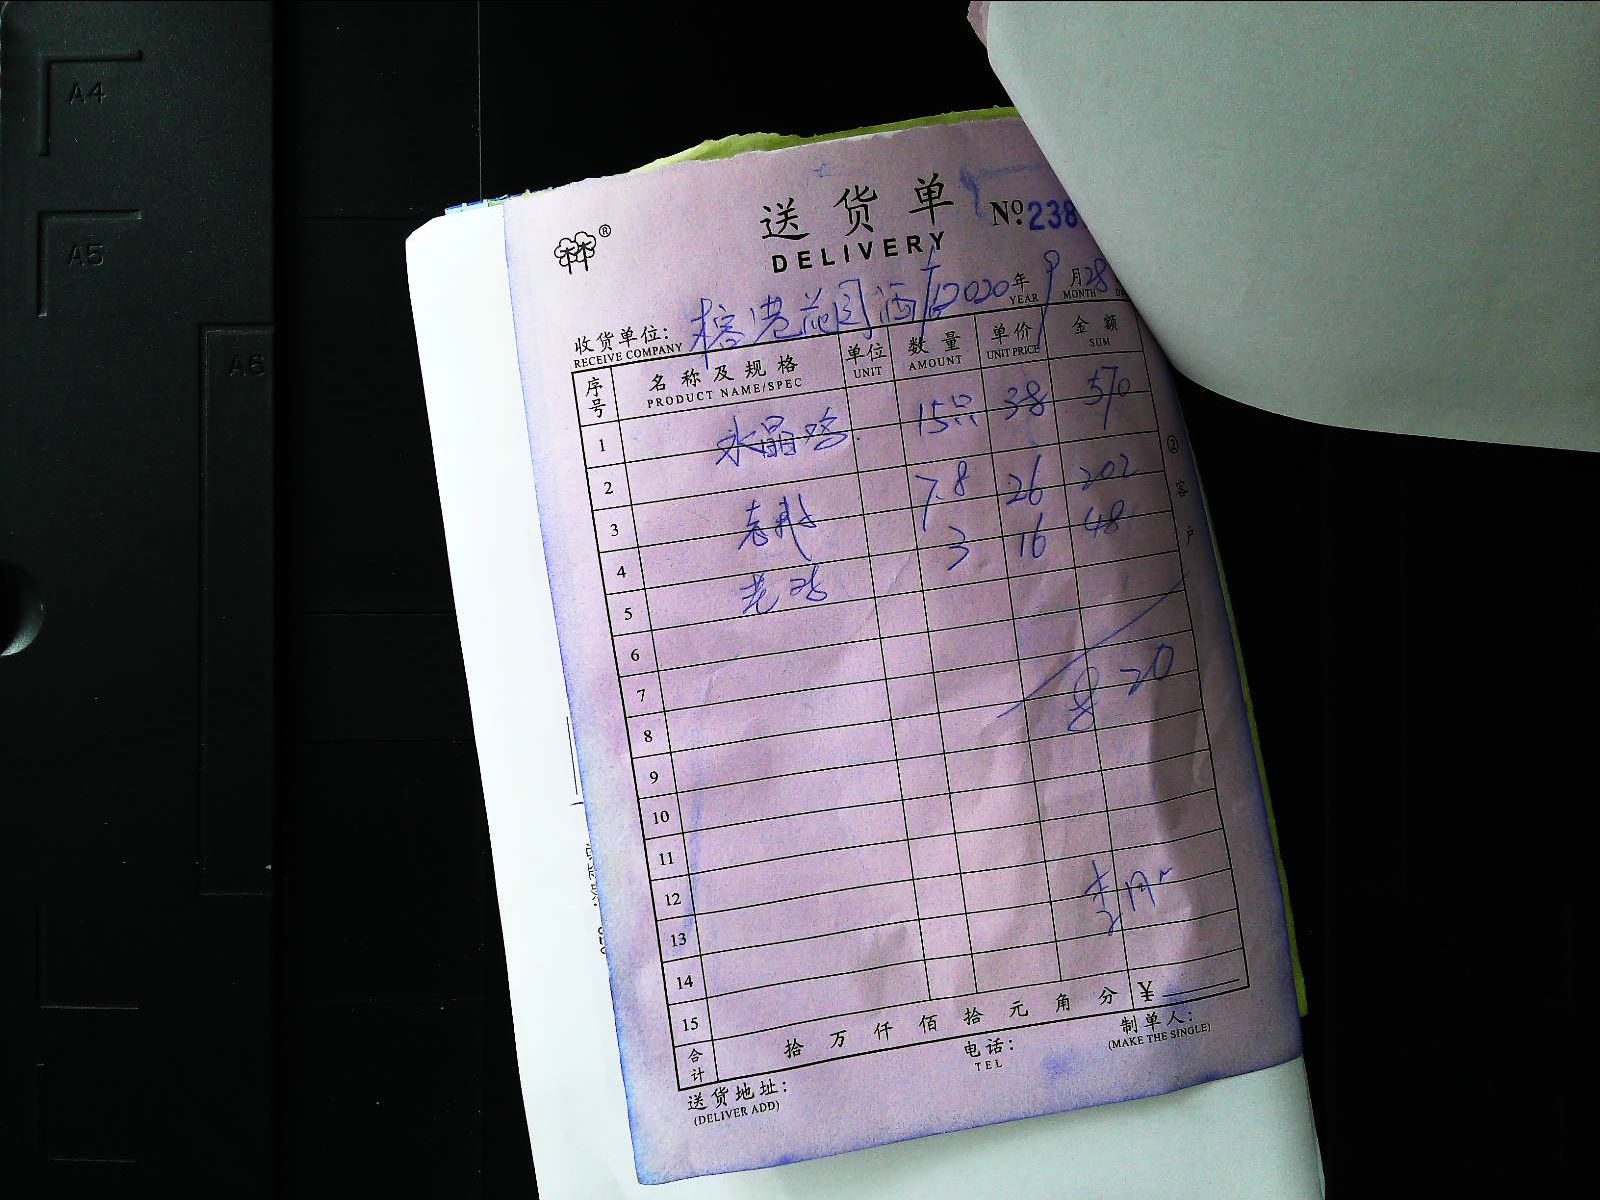 A4
A5
A6
®
送货单 No 238
DELIVERY
收货单位: 榕港花园酒店 2020 年 9 月 28
RECEIVE COMPANY YEAR MONTH
序号 名称及规格 单位 数量 单价 金额
PRODUCT NAME/SPEC UNIT AMOUNT UNIT PRICE SUM
1 水晶鸡 15只 38 570
2
3 7.8 26 202
4 老鸡 3 16 48
5
6
7 820
8
9
10
11
12
13
14
15
合计 拾 万 仟 佰 拾 元 角 分 ¥
送货地址: 电话: 制单人:
(DELIVER ADD) TEL (MAKE THE SINGLE)
②客户